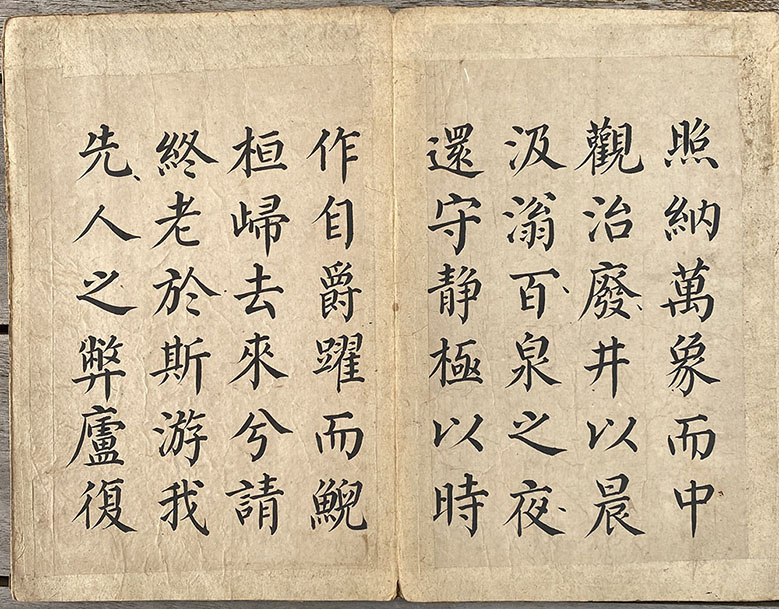 照納萬象而中
觀治廢井以晨
汲滃百泉之夜
還守静極以時
作自爵躍而鯢
桓歸去來兮請
終老於斯游我
先人之弊廬復